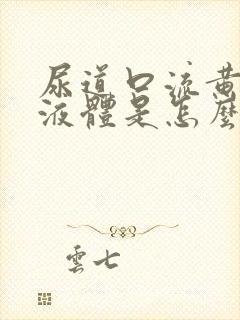 尿道口流黄
液體是怎麼
雲七